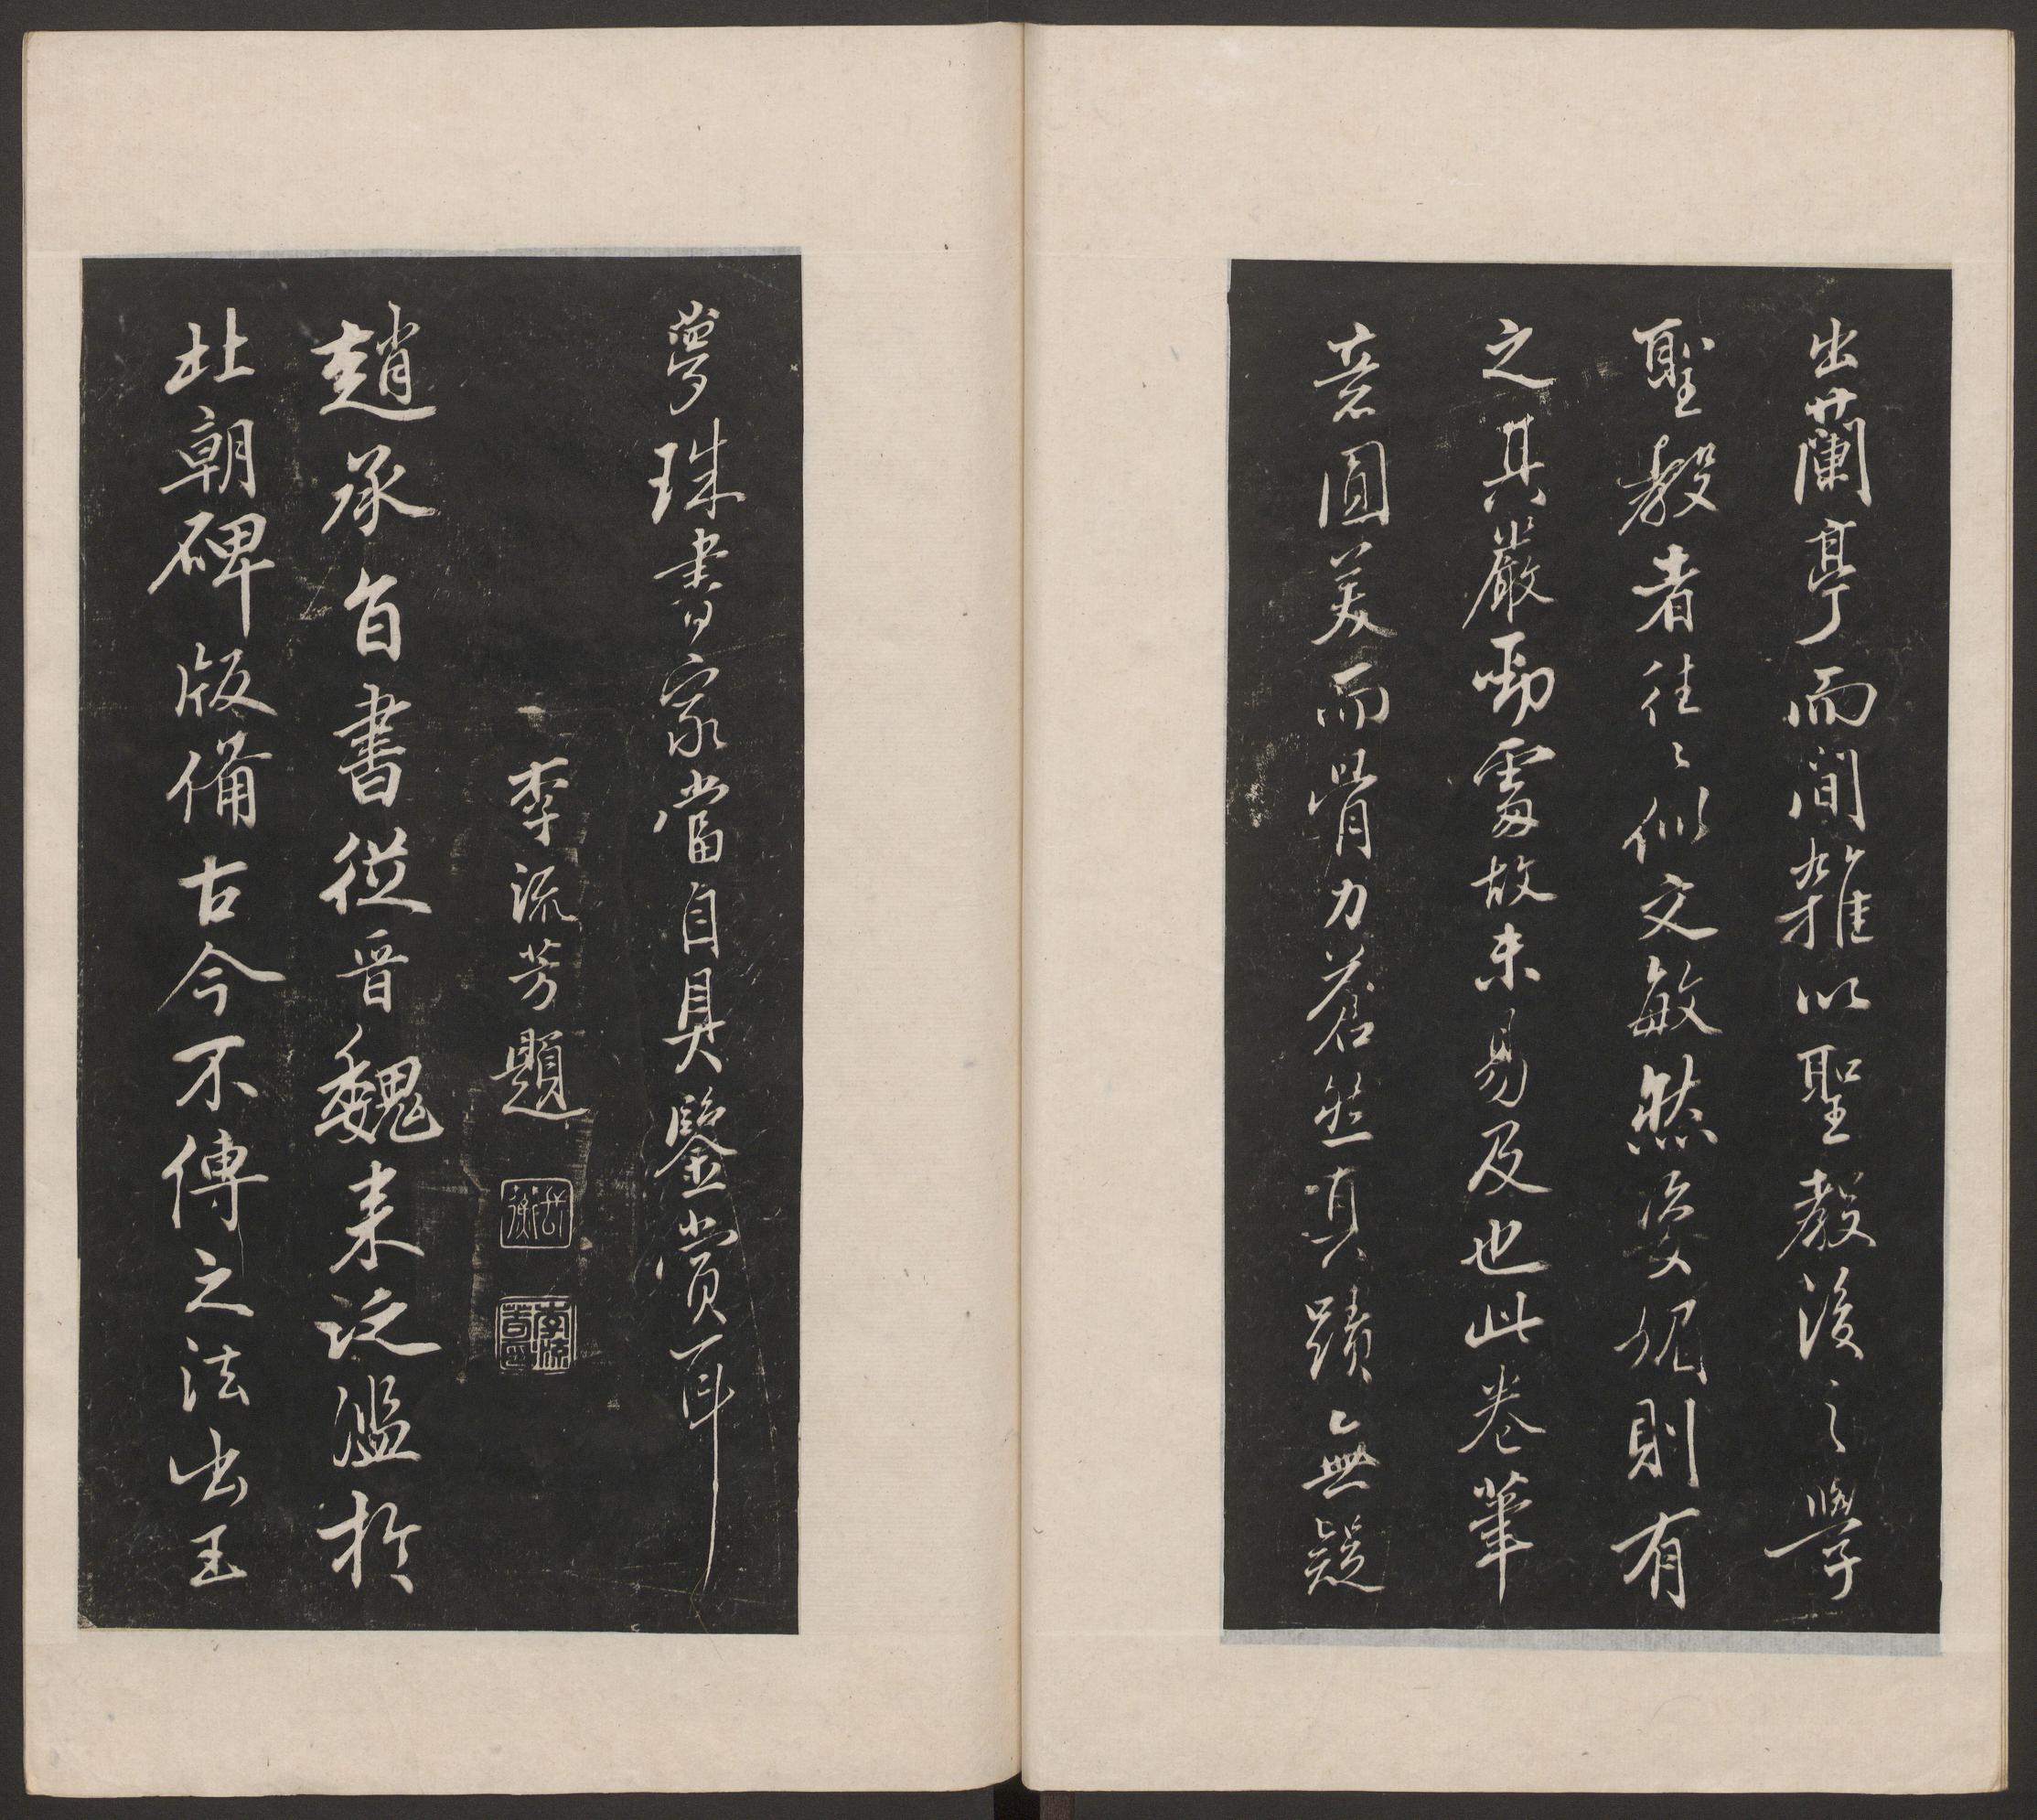 出蘭亭而間雜以聖教後之學
聖教者往〻似文敏然姿媚則有
之其嚴勁處故未易及也此卷筆
意圓美而骨力蒼然真蹟無疑
夢珠書家當自具鑒賞耳
李流芳題
趙承旨書從晉魏来泛濫於
北朝碑版備古今不傳之法出玉